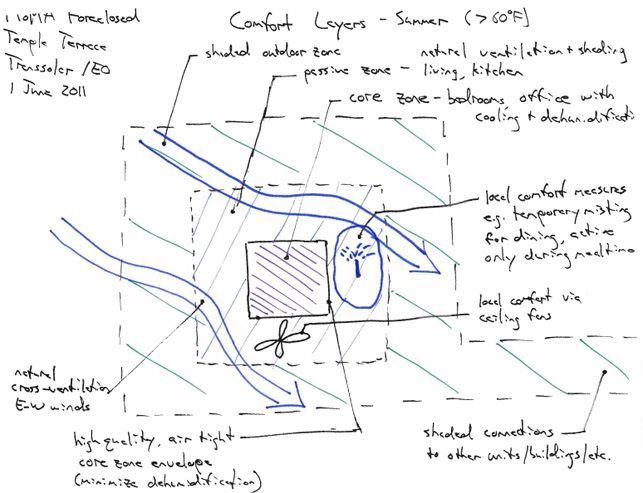 Foreclosed
Temple Terrace
Transsolar / EO
1 June 2011
Comfort Layers - Summer (>60°F)
shaded outdoor zone
passive zone - natural ventilation + shading
living, kitchen
core zone - bedrooms, office with
cooling + dehumidificati
local comfort measures
e.g. temporary misting
for dining, active
only during mealtime
local comfort via
ceiling fans
natural
cross-ventilation
E-W winds
high quality, air tight
core zone envelope
(minimize dehumidification)
shaded connections
to other units/buildings/etc.